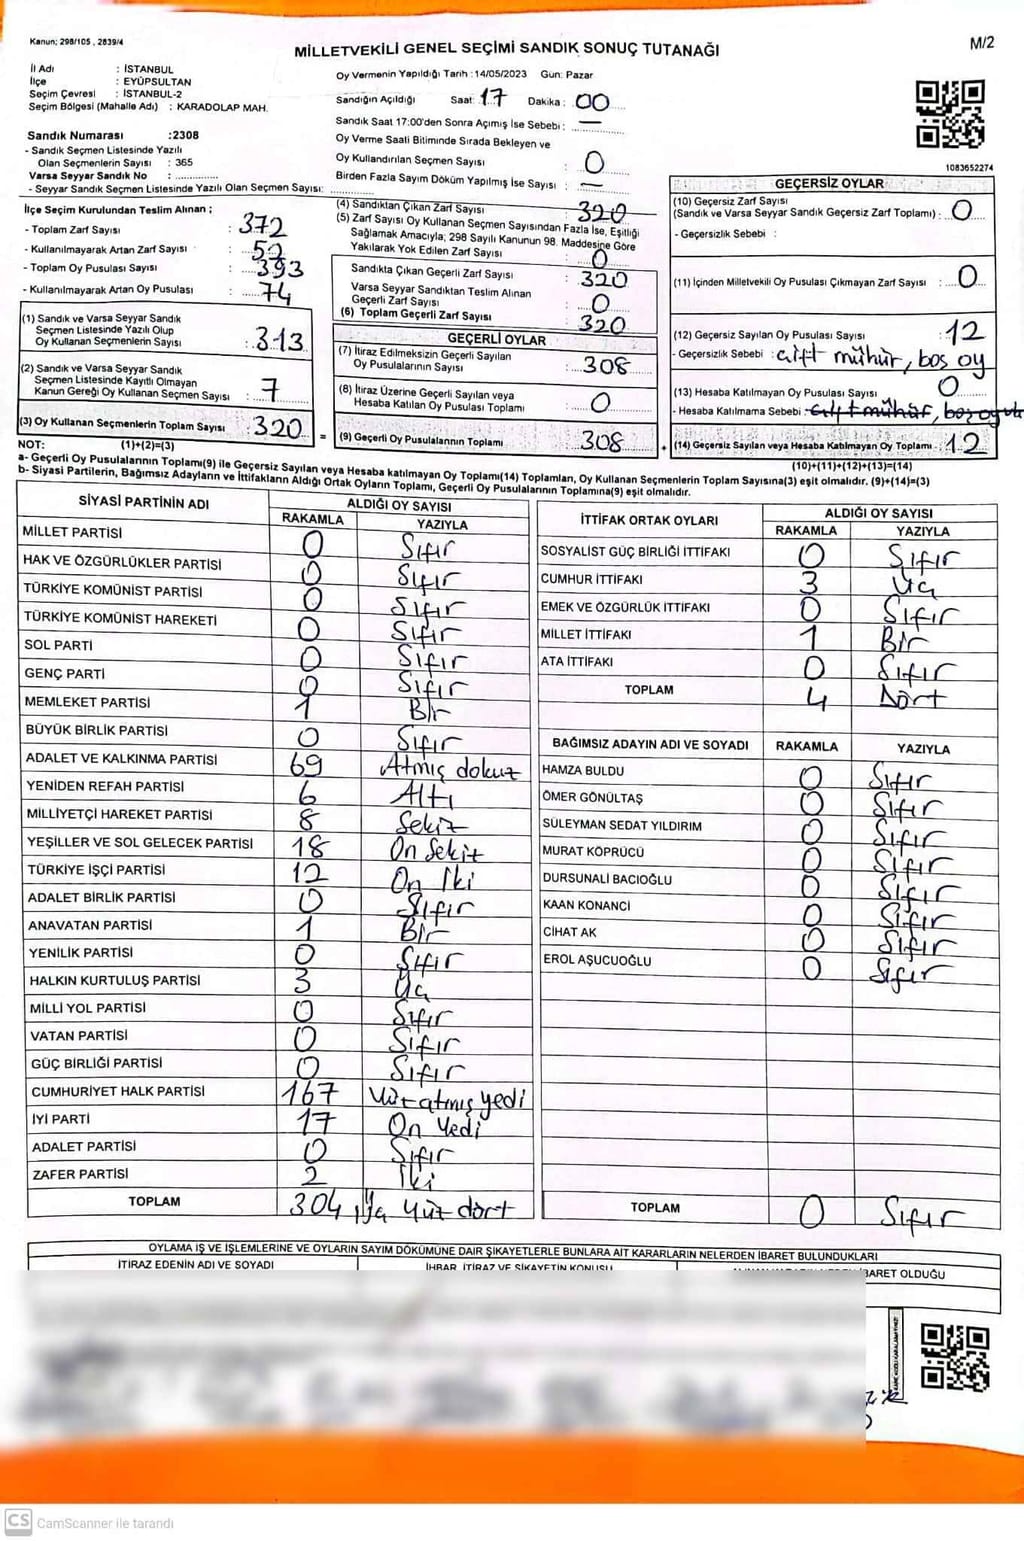 Kanun; 298/105 , 2839/4
MİLLETVEKİLİ GENEL SEÇİMİ SANDIK SONUÇ TUTANAĞI
M/2
İl Adı : İSTANBUL
İlçe : EYÜPSULTAN
Seçim Çevresi : İSTANBUL-2
Seçim Bölgesi (Mahalle Adı) : KARADOLAP MAH.
Sandık Numarası :2308
- Sandık Seçmen Listesinde Yazılı
Olan Seçmenlerin Sayısı : 365
Varsa Seyyar Sandık No : ..............
- Seyyar Sandık Seçmen Listesinde Yazılı Olan Seçmen Sayısı: ..............
Oy Vermenin Yapıldığı Tarih :14/05/2023 Gün: Pazar
Sandığın Açıldığı Saat: 17 Dakika : 00
Sandık Saat 17:00'den Sonra Açımış İse Sebebi : —
Oy Verme Saati Bitiminde Sırada Bekleyen ve
Oy Kullandırılan Seçmen Sayısı : 0
Birden Fazla Sayım Döküm Yapılmış İse Sayısı : —
1083652274
İlçe Seçim Kurulundan Teslim Alınan ;
- Toplam Zarf Sayısı : 372
- Kullanılmayarak Artan Zarf Sayısı : 52
- Toplam Oy Pusulası Sayısı : 393
- Kullanılmayarak Artan Oy Pusulası : 74
(1) Sandık ve Varsa Seyyar Sandık
Seçmen Listesinde Yazılı Olup
Oy Kullanan Seçmenlerin Sayısı : 313
(2) Sandık ve Varsa Seyyar Sandık
Seçmen Listesinde Kayıtlı Olmayan
Kanun Gereği Oy Kullanan Seçmen Sayısı : 7
(3) Oy Kullanan Seçmenlerin Toplam Sayısı : 320 =
(4) Sandıktan Çıkan Zarf Sayısı : 320
(5) Zarf Sayısı Oy Kullanan Seçmen Sayısından Fazla İse, Eşitliği
Sağlamak Amacıyla; 298 Sayılı Kanunun 98. Maddesine Göre
Yakılarak Yok Edilen Zarf Sayısı : 0
Sandıkta Çıkan Geçerli Zarf Sayısı : 320
Varsa Seyyar Sandıktan Teslim Alınan
Geçerli Zarf Sayısı : 0
(6) Toplam Geçerli Zarf Sayısı : 320
GEÇERLİ OYLAR
(7) İtiraz Edilmeksizin Geçerli Sayılan
Oy Pusulalarının Sayısı : 308
(8) İtiraz Üzerine Geçerli Sayılan veya
Hesaba Katılan Oy Pusulası Toplamı : 0
(9) Geçerli Oy Pusulalarının Toplamı : 308 +
GEÇERSİZ OYLAR
(10) Geçersiz Zarf Sayısı
(Sandık ve Varsa Seyyar Sandık Geçersiz Zarf Toplamı) : 0
- Geçersizlik Sebebi :
(11) İçinden Milletvekili Oy Pusulası Çıkmayan Zarf Sayısı : 0
(12) Geçersiz Sayılan Oy Pusulası Sayısı : 12
- Geçersizlik Sebebi : çift mühür, boş oy
(13) Hesaba Katılmayan Oy Pusulası Sayısı : 0
- Hesaba Katılmama Sebebi : çift mühür, boş oy
(14) Geçersiz Sayılan veya Hesaba Katılmayan Oy Toplamı : 12
NOT: (1)+(2)=(3)
(10)+(11)+(12)+(13)=(14)
a- Geçerli Oy Pusulalarının Toplamı(9) ile Geçersiz Sayılan veya Hesaba katılmayan Oy Toplamı(14) Toplamları, Oy Kullanan Seçmenlerin Toplam Sayısına(3) eşit olmalıdır. (9)+(14)=(3)
b- Siyasi Partilerin, Bağımsız Adayların ve İttifakların Aldığı Ortak Oyların Toplamı, Geçerli Oy Pusulalarının Toplamına(9) eşit olmalıdır.
SİYASİ PARTİNİN ADI ALDIĞI OY SAYISI
RAKAMLA YAZIYLA
MİLLET PARTİSİ 0 Sıfır
HAK VE ÖZGÜRLÜKLER PARTİSİ 0 Sıfır
TÜRKİYE KOMÜNİST PARTİSİ 0 Sıfır
TÜRKİYE KOMÜNİST HAREKETİ 0 Sıfır
SOL PARTİ 0 Sıfır
GENÇ PARTİ 0 Sıfır
MEMLEKET PARTİSİ 1 Bir
BÜYÜK BİRLİK PARTİSİ 0 Sıfır
ADALET VE KALKINMA PARTİSİ 69 Atmış dokuz
YENİDEN REFAH PARTİSİ 6 Altı
MİLLİYETÇİ HAREKET PARTİSİ 8 Sekiz
YEŞİLLER VE SOL GELECEK PARTİSİ 18 On Sekiz
TÜRKİYE İŞÇİ PARTİSİ 12 On İki
ADALET BİRLİK PARTİSİ 0 Sıfır
ANAVATAN PARTİSİ 1 Bir
YENİLİK PARTİSİ 0 Sıfır
HALKIN KURTULUŞ PARTİSİ 3 Üç
MİLLİ YOL PARTİSİ 0 Sıfır
VATAN PARTİSİ 0 Sıfır
GÜÇ BİRLİĞİ PARTİSİ 0 Sıfır
CUMHURİYET HALK PARTİSİ 167 Yüz atmış yedi
İYİ PARTİ 17 On Yedi
ADALET PARTİSİ 0 Sıfır
ZAFER PARTİSİ 2 İki
TOPLAM 304 Üç Yüz dört
İTTİFAK ORTAK OYLARI ALDIĞI OY SAYISI
RAKAMLA YAZIYLA
SOSYALİST GÜÇ BİRLİĞİ İTTİFAKI 0 Sıfır
CUMHUR İTTİFAKI 3 Üç
EMEK VE ÖZGÜRLÜK İTTİFAKI 0 Sıfır
MİLLET İTTİFAKI 1 Bir
ATA İTTİFAKI 0 Sıfır
TOPLAM 4 Dört
BAĞIMSIZ ADAYIN ADI VE SOYADI RAKAMLA YAZIYLA
HAMZA BULDU 0 Sıfır
ÖMER GÖNÜLTAŞ 0 Sıfır
SÜLEYMAN SEDAT YILDIRIM 0 Sıfır
MURAT KÖPRÜCÜ 0 Sıfır
DURSUNALİ BACIOĞLU 0 Sıfır
KAAN KONANCİ 0 Sıfır
CİHAT AK 0 Sıfır
EROL AŞUCUOĞLU 0 Sıfır
TOPLAM 0 Sıfır
OYLAMA İŞ VE İŞLEMLERİNE VE OYLARIN SAYIM DÖKÜMÜNE DAİR ŞİKAYETLERLE BUNLARA AİT KARARLARIN NELERDEN İBARET BULUNDUKLARI
İTİRAZ EDENİN ADI VE SOYADI İHBAR, İTİRAZ VE ŞİKAYETİN KONUSU İBARET OLDUĞU
CS CamScanner ile tarandı